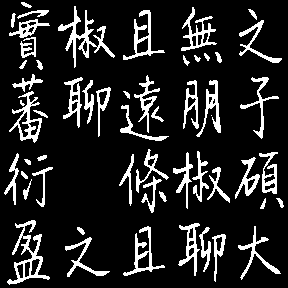 文子碩大
無朋椒聊
且遠條且
椒聊 文
實蕃衍盈